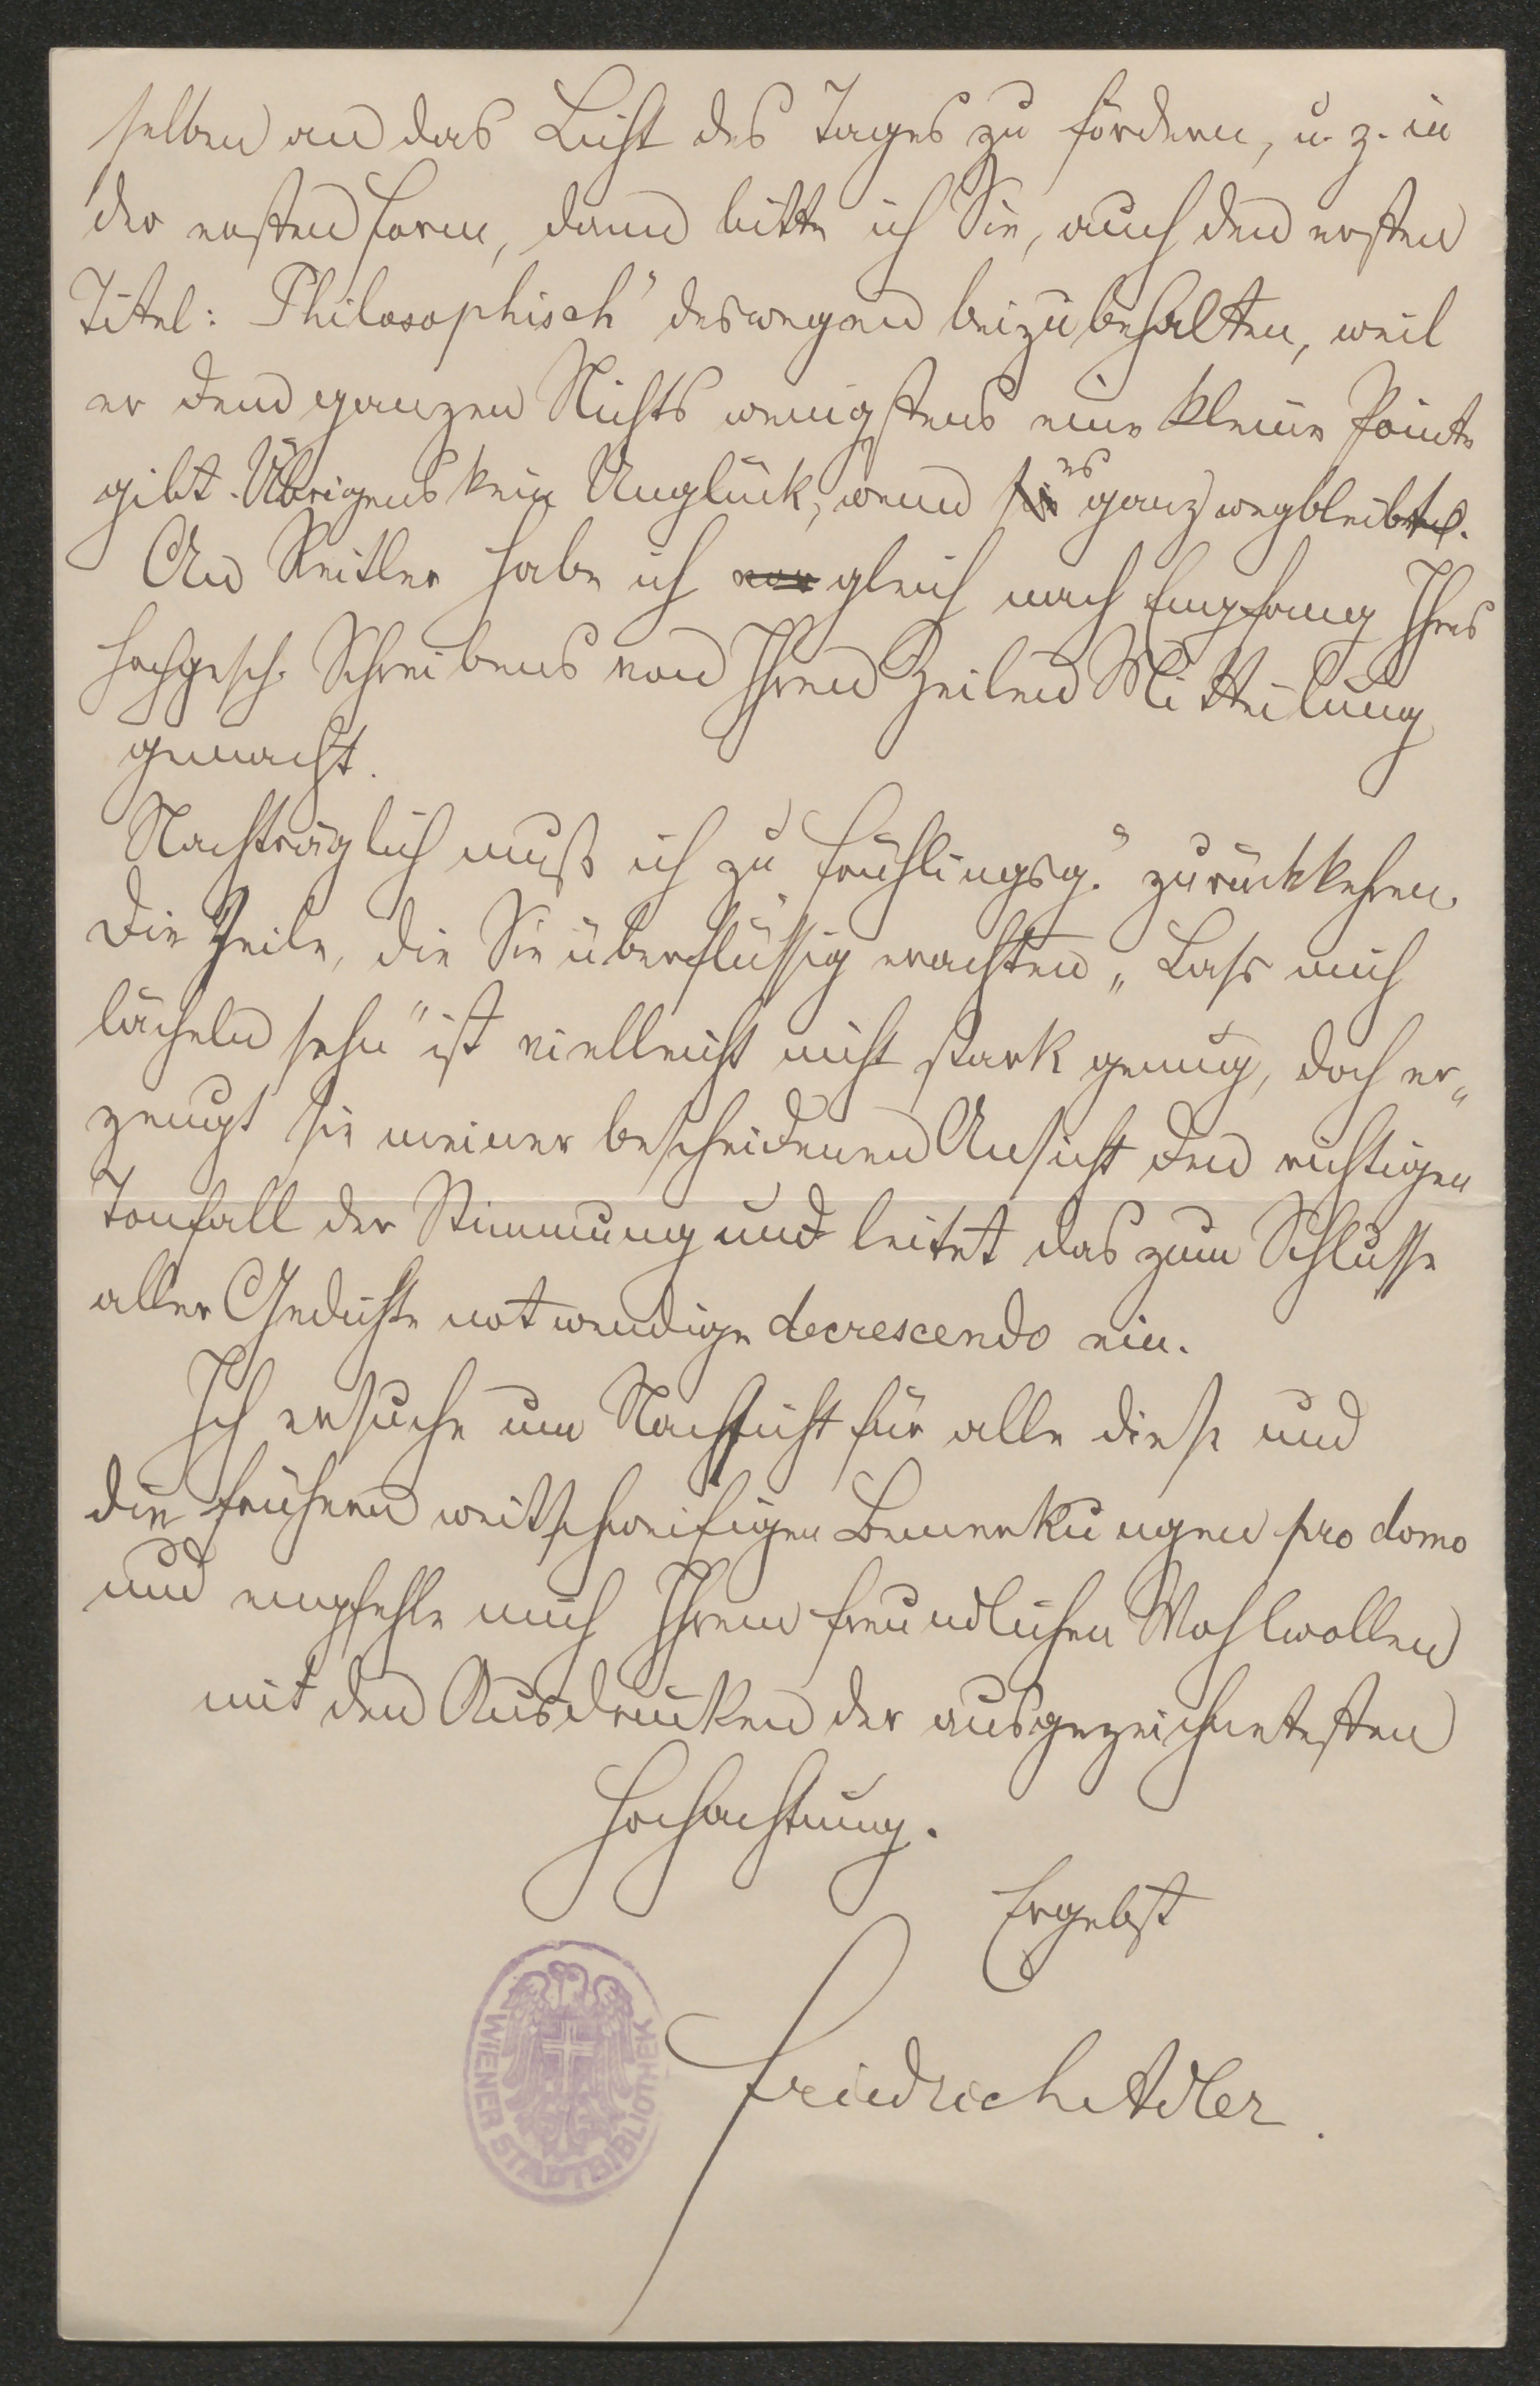 selben an das Licht des Tages zu fördern, u. z. in
der ersten Form, dann bitte ich Sie, auch den ersten
Titel: Philosophisch" deswegen beizubehalten, weil
er dem ganzen Nichts wenigstens eine kleine Pointe
gibt. Übrigens kein Unglück, wenn sie es ganz wegbleibt.
An Reitler habe ich vor gleich nach Empfang Ihres
hochgesch. Schreibens von Ihren Zeilen Mitteilung
gemacht.
Nachträglich muß ich zu „Frühlingsg." zurückkehren.
Die Zeile, die Sie überflüssig erachten „Lass mich
lächeln sehn" ist vielleicht nicht stark genug, doch er„
zeugt sie meiner bescheidenen Ansicht den richtigen
Tonfall der Stimmung und leitet das zum Schlusse
aller Gedichte notwendige decrescendo ein.
Ich ersuche um Nachsicht für alle diese und
die frühern weitschweifigen Bemerkungen pro domo
und empfehle mich Ihrem freundlichen Wohlwollen
mit den Ausdrücken der ausgezeichnetesten
Hochachtung.
Ergebst
Friedrich Adler.
WIENER STADTBIBLIOTHEK